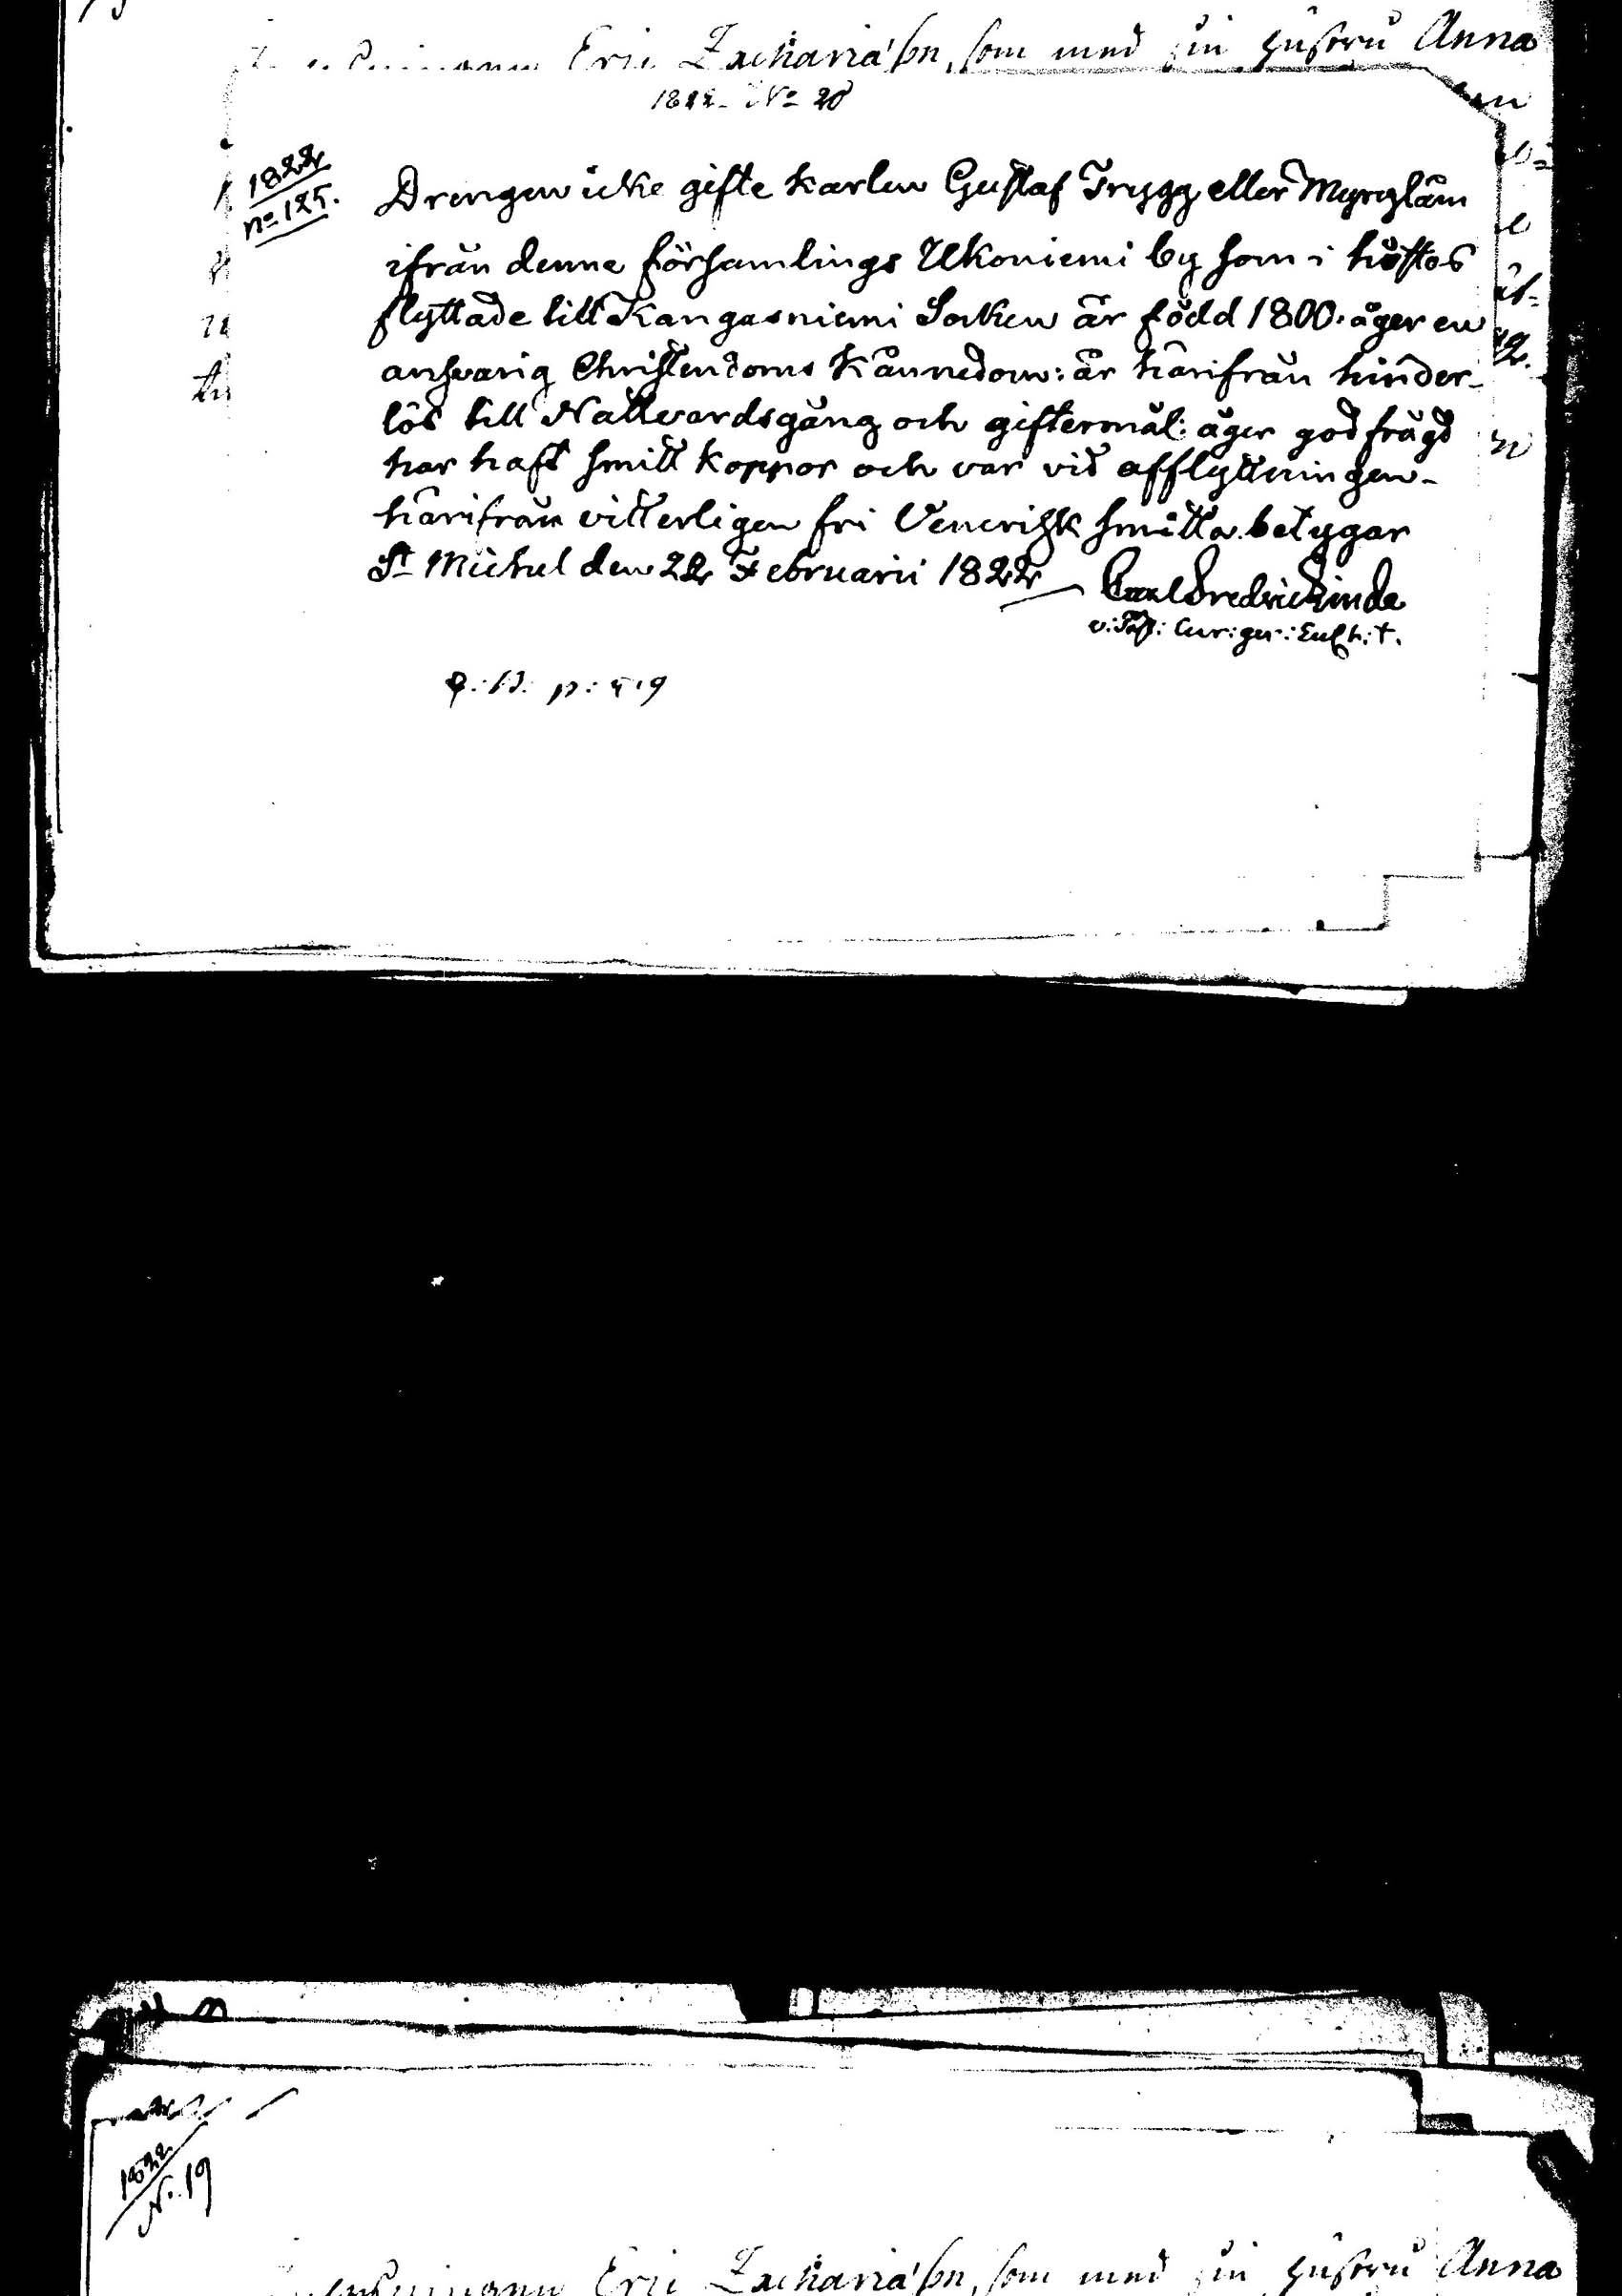 Eric Zachariasſn, ſom med ſin huſtru Anna
1822. No 20
1822
no 125.
Drengen icke gifte karlen Guſtaf Trygg eller
ifrån denne förſamlings Ukoniemi by ſom i höſtos
flyttade till Kangasniemi Socken är född 1800. äger en
anſvarig Chriſtendoms kännedom: är härifrån hinder-
lös till Nattvardsgång och giftermål: äger god frägd
har haft ſmitt koppor och var vid afflyttningen
härifrån vitterligen fri Veneriſk ſmitta. betygar
St Michel den 22 Februarii 1822
Carl Fredric
1822
No. 19
Eric Zachariasſn, ſom med ſin huſtru Anna